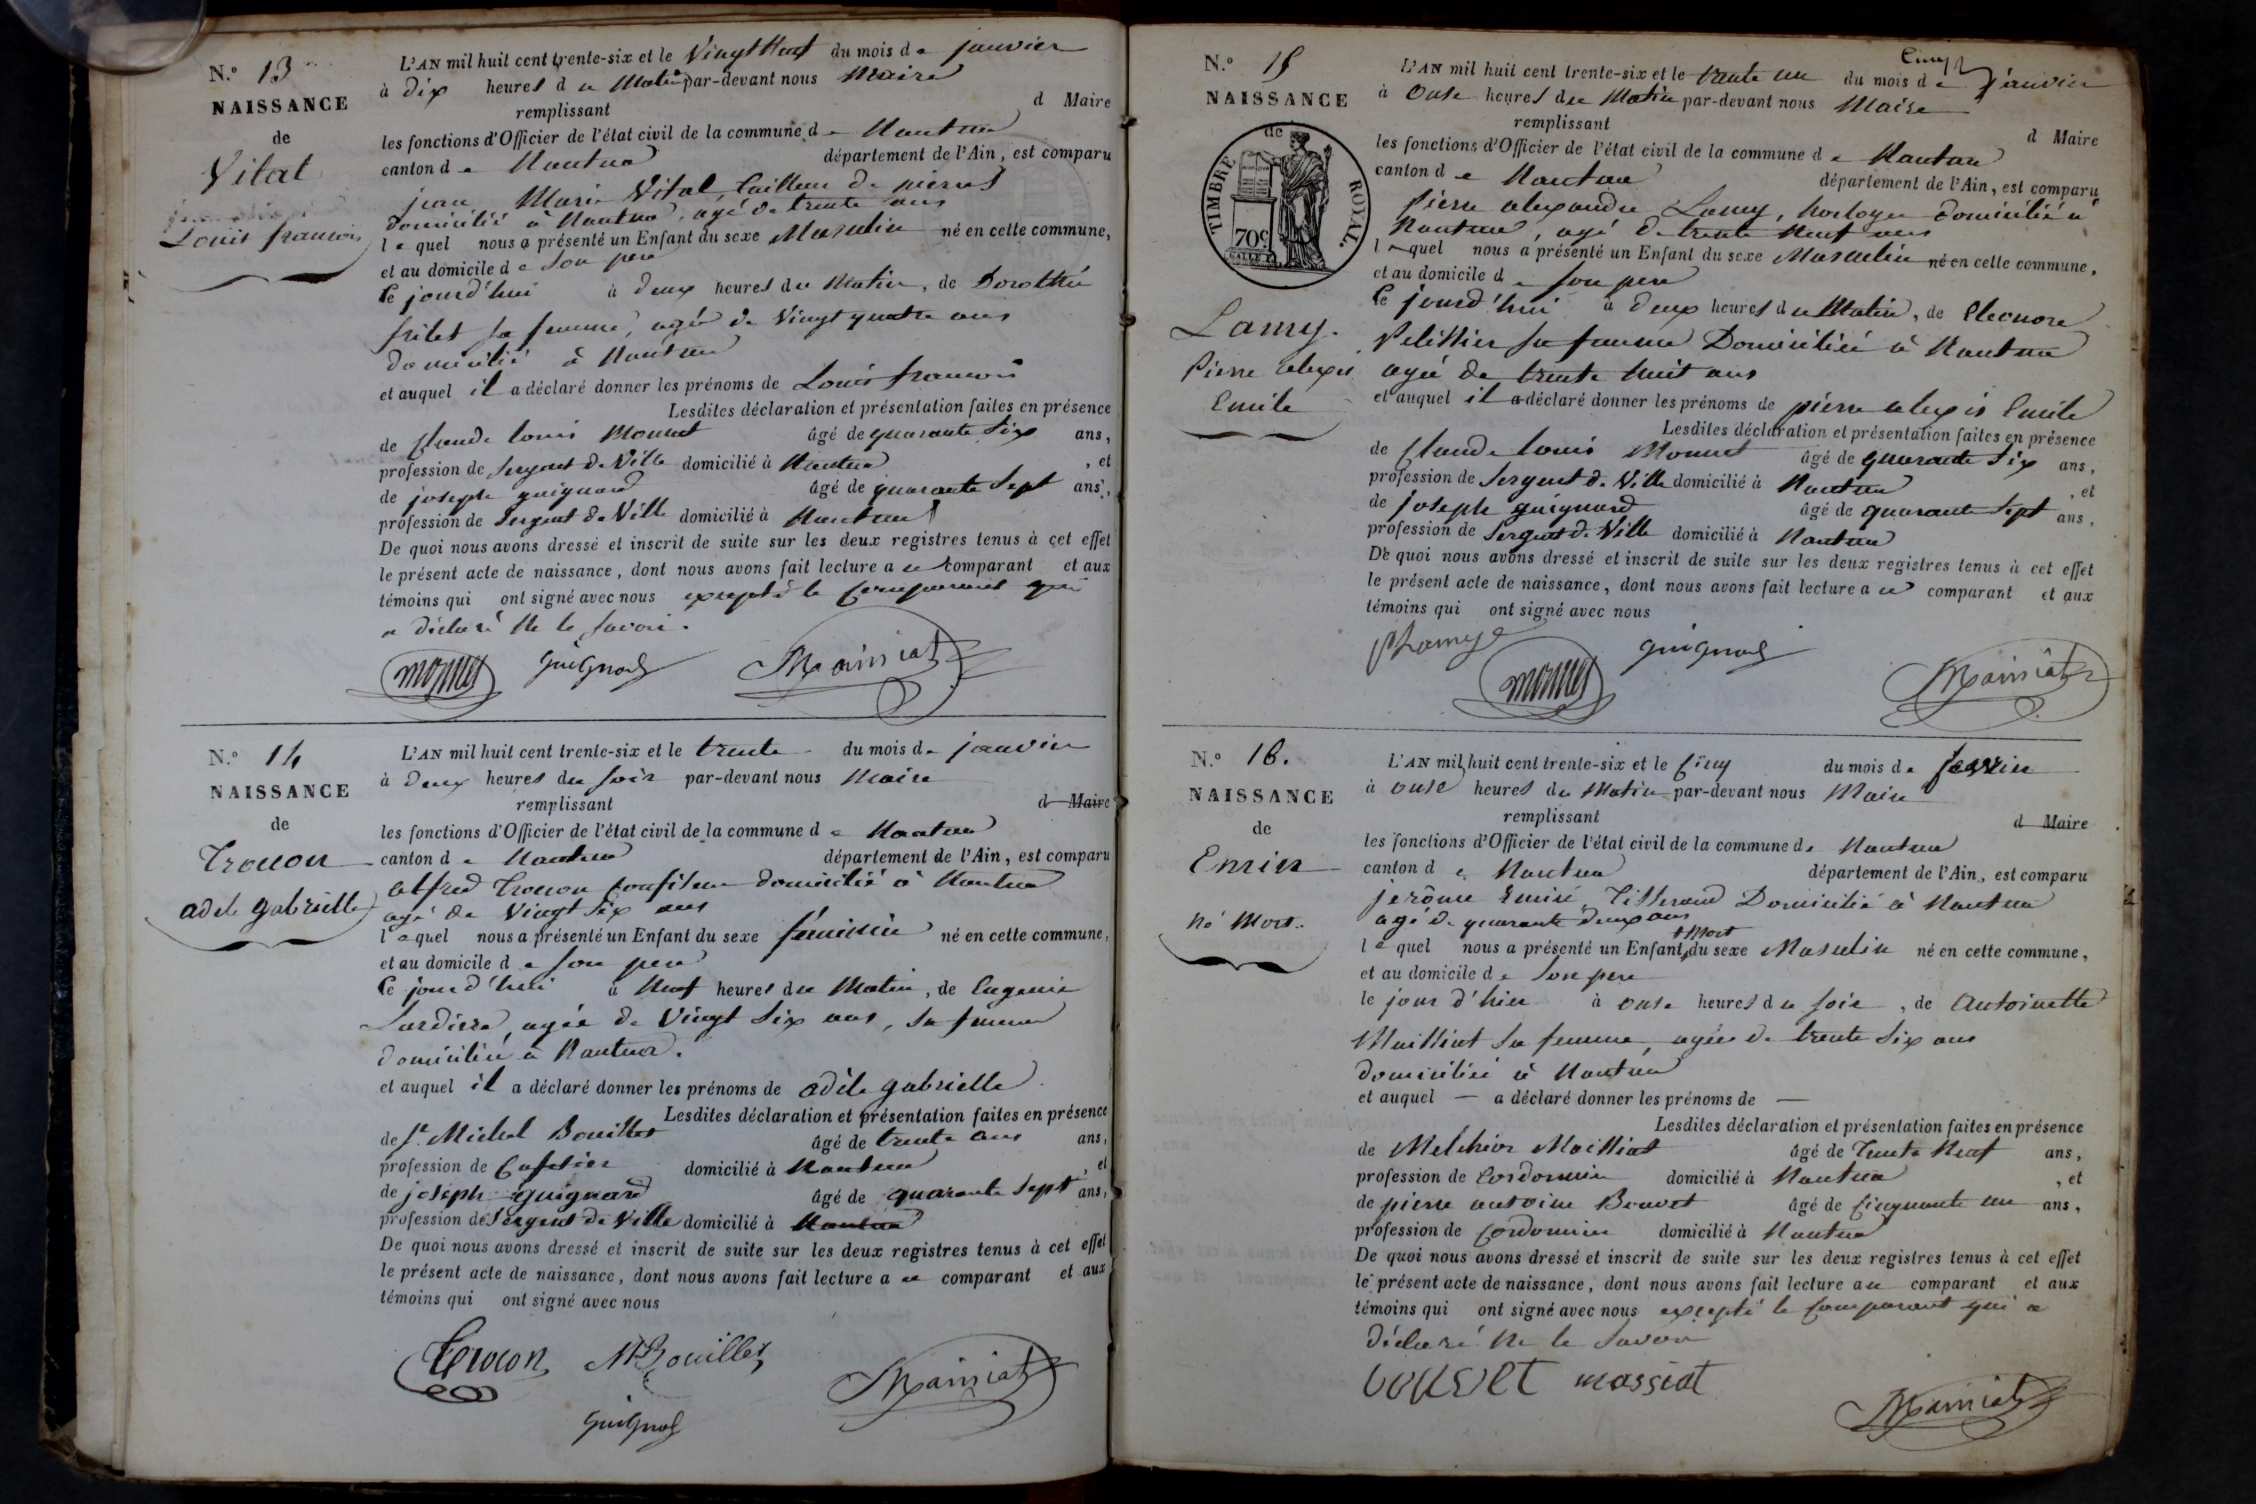 N.° 13
NAISSANCE
de
Vital
Louis françois
L'AN mil huit cent trente-six et le Vingt Neuf du mois de janvier
à dix heures du Matin par-devant nous Maire
remplissant d Maire
les fonctions d'Officier de l'état civil de la commune de Nantua
canton de Nantua département de l'Ain, est comparu
jean Marie Vital tailleur de pierres
domicilié à Nantua, agé de trente ans
lequel nous a présenté un Enfant du sexe Masculin né en cette commune,
et au domicile de son pere
Ce jourd'hui à deux heures du Matin, de Dorothée
frilet sa femme, agée de Vingt quatre ans
domicilié à Nantua
et auquel il a déclaré donner les prénoms de Louis françois
Lesdites déclaration et présentation faites en présence
de Claude Louis Monnet âgé de quarante Six ans,
profession de Sergent de Ville domicilié à Nantua, et
de joseph guignard âgé de quarante Sept ans,
profession de Sergent de Ville domicilié à Nantua
De quoi nous avons dressé et inscrit de suite sur les deux registres tenus à cet effet
le présent acte de naissance, dont nous avons fait lecture au comparant et aux
témoins qui ont signé avec nous excepté le Comparant qui
a déclaré Ne le Savoir.
monnet guignard Mainiat
N.° 14
NAISSANCE
de
Trocon
adele gabrielle
L'AN mil huit cent trente-six et le trente du mois de janvier
à deux heures du soir par-devant nous Maire
remplissant d Maire
les fonctions d'Officier de l'état civil de la commune de Nantua
canton de Nantua département de l'Ain, est comparu
alfred Trocon Confiseur domicilié à Nantua
agé de Vingt Six ans
lequel nous a présenté un Enfant du sexe féminin né en cette commune,
et au domicile de son pere
Ce jourd'hui à Neuf heures du Matin, de Eugenie
agée de Vingt Six ans, sa femme
domiciliée à Nantua.
et auquel il a déclaré donner les prénoms de adèle gabrielle
Lesdites déclaration et présentation faites en présence
de Michel Bouillet âgé de trente ans ans,
profession de Cafetier domicilié à Nantua, et
de joseph guignard âgé de quarante Sept ans,
profession de Sergent de Ville domicilié à Nantua
De quoi nous avons dressé et inscrit de suite sur les deux registres tenus à cet effet
le présent acte de naissance, dont nous avons fait lecture au comparant et aux
témoins qui ont signé avec nous
Trocon Bouillet Mainiat
guignard
N.° 15
NAISSANCE
de
TIMBRE ROYAL.
70c
Lamy.
Pierre alexis
Emile
L'AN mil huit cent trente-six et le trente un du mois de janvier
à Onze heures du Matin par-devant nous Maire
remplissant d Maire
les fonctions d'Officier de l'état civil de la commune de Nantua
canton de Nantua département de l'Ain, est comparu
Pierre alexandre Lamy, horloger domicilié à
Nantua, agé de trente Neuf ans
lequel nous a présenté un Enfant du sexe Masculin né en cette commune,
et au domicile de son pere
Ce jourd'hui à deux heures du Matin, de Eleonore
Pelissier sa femme Domiciliée à Nantua
agée de trente huit ans
et auquel il a déclaré donner les prénoms de pierre alexis Emile
Lesdites déclaration et présentation faites en présence
de Claude Louis Monnet âgé de quarante Six ans,
profession de Sergent de Ville domicilié à Nantua, et
de joseph guignard âgé de quarante Sept ans,
profession de Sergent de Ville domicilié à Nantua
De quoi nous avons dressé et inscrit de suite sur les deux registres tenus à cet effet
le présent acte de naissance, dont nous avons fait lecture au comparant et aux
témoins qui ont signé avec nous
Lamy monnet guignard Mainiat
N.° 16.
NAISSANCE
de
Emin
Né Mort.
L'AN mil huit cent trente-six et le Cinq du mois de fevrier
à onze heures du Matin par-devant nous Maire
remplissant d Maire
les fonctions d'Officier de l'état civil de la commune de Nantua
canton de Nantua département de l'Ain, est comparu
jerôme Tisserand Domicilié à Nantua
agé de quarante deux ans
Mort
lequel nous a présenté un Enfant du sexe Masculin né en cette commune,
et au domicile de Son pere
le jour d'hier à onze heures du soir, de Antoinette
Mailliat sa femme, agée de trente Six ans
domiciliée à Nantua
et auquel — a déclaré donner les prénoms de —
Lesdites déclaration et présentation faites en présence
de Melchior Mailliat âgé de Trente Neuf ans,
profession de Cordonnier domicilié à Nantua, et
de pierre antoine Bouvet âgé de Cinquante un ans,
profession de Cordonnier domicilié à Nantua
De quoi nous avons dressé et inscrit de suite sur les deux registres tenus à cet effet
le présent acte de naissance, dont nous avons fait lecture au comparant et aux
témoins qui ont signé avec nous excepté le Comparant qui a
déclaré Ne le Savoir
massiat Mainiat